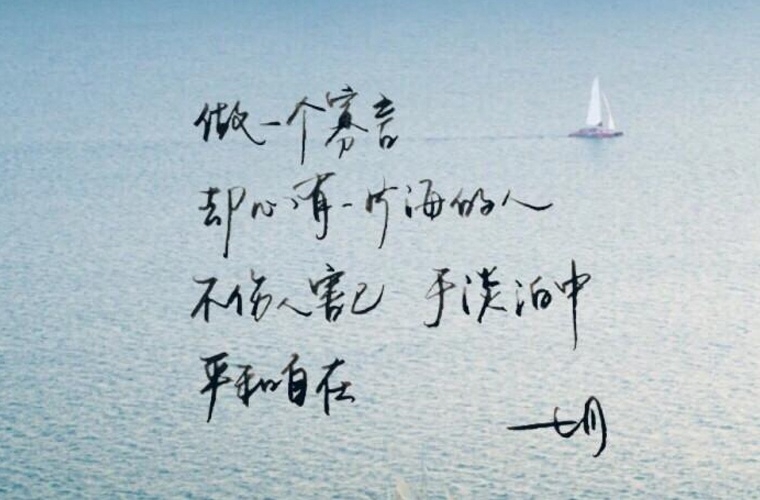 做一个寡言
却心有一片海的人
不伤人害己 于淡泊中
平和自在
一七月